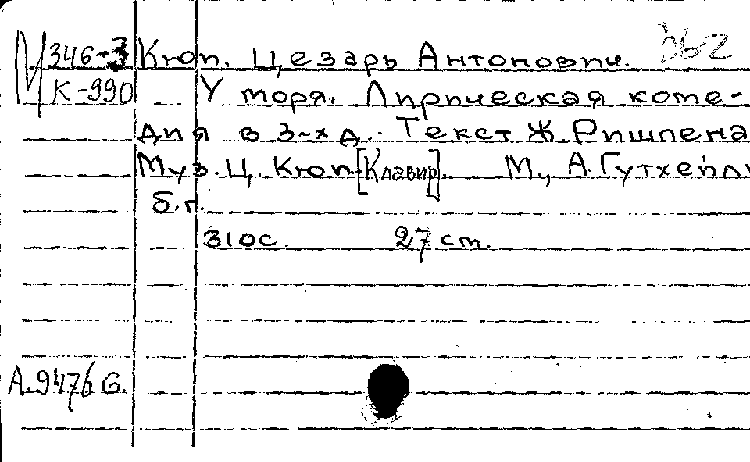 М 346-3 Кюи. Цезарь Антонович. 862
К-990 У моря. Лирическая коме-
дия в 3-х д. Текст Ж. Ришпена
Муз. Ц. Кюи [Клавир]. М., А. Гутхейль
б.г.
310с. 27 cm.
А.9476 G.